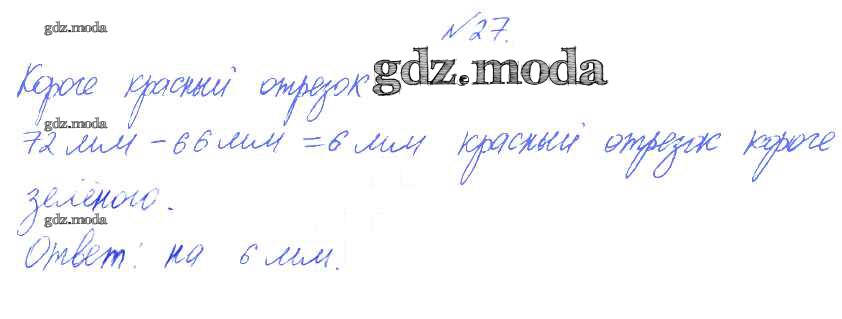 gdz.moda
№27.
Короче красный отрезок
gdz.moda
gdz.moda
72 мм - 66 мм = 6 мм красный отрезок короче
зелёного.
gdz.moda
Ответ: на 6 мм.